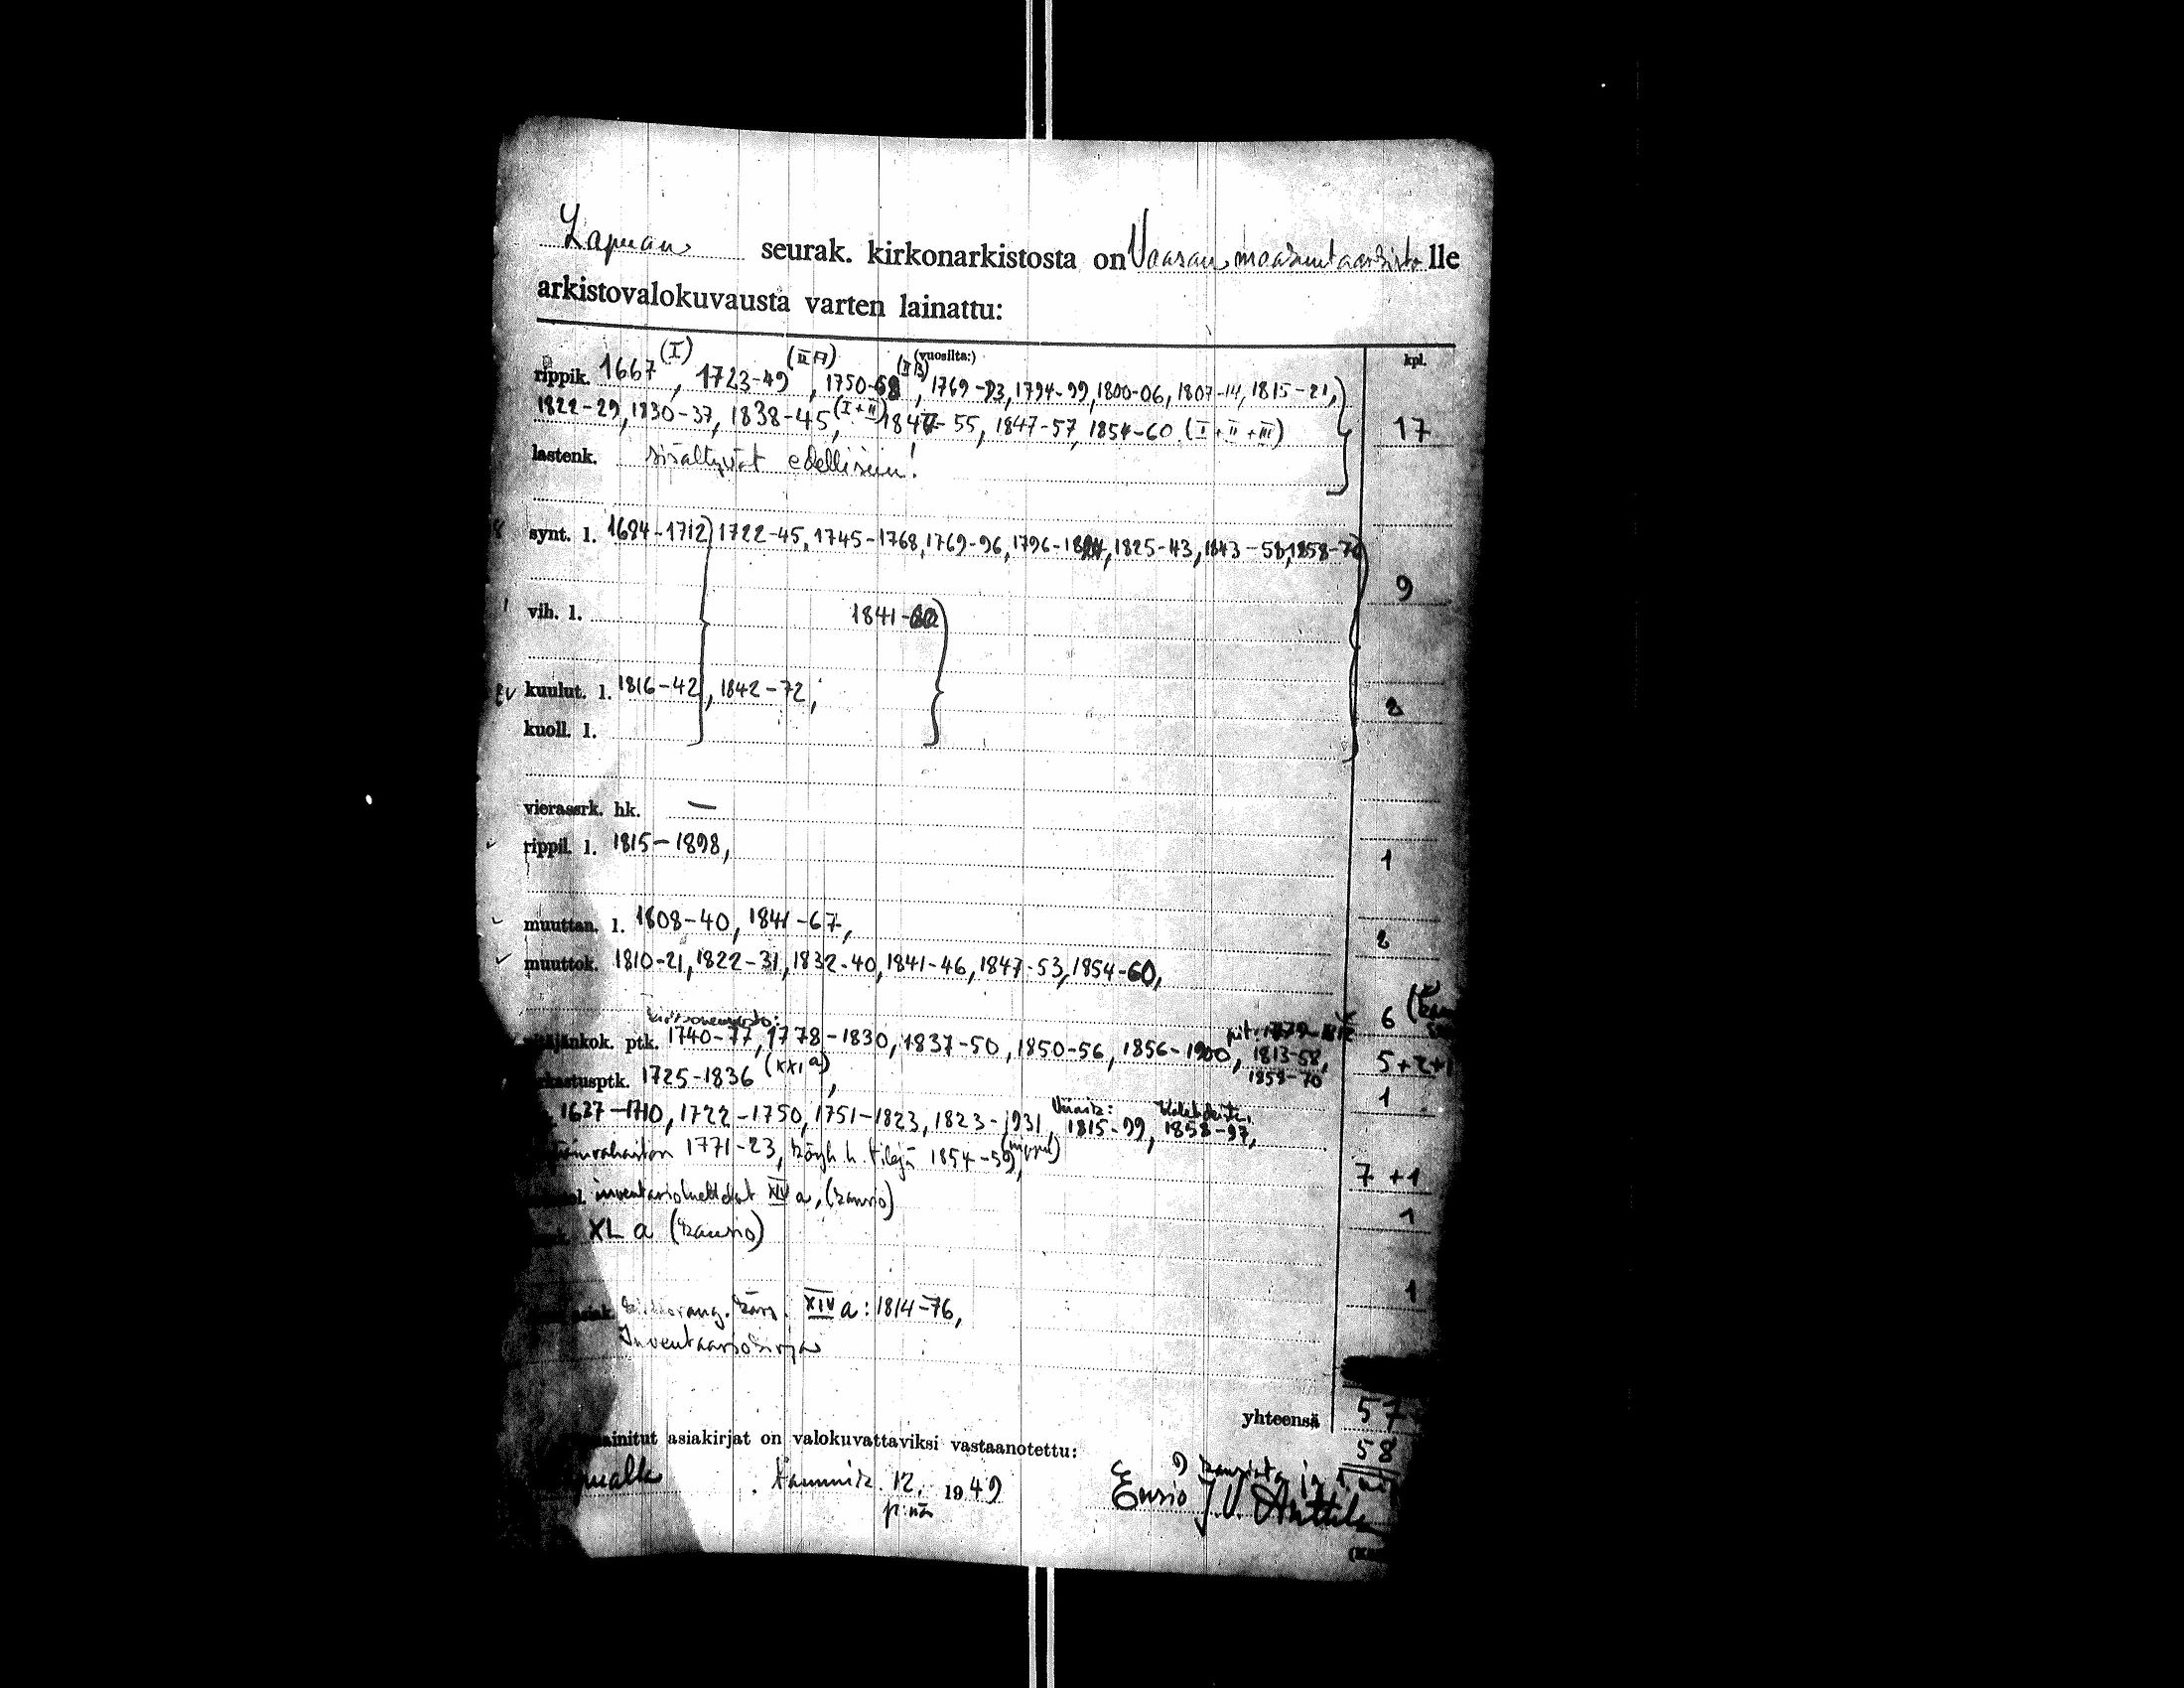 Lapuan seurak. kirkonarkistosta on Vaasan maakuntaarkistolle
arkistovalokuvausta varten lainattu:
(vuosilta:) kpl.
rippik. 1667 (I), 1723-49 (II A), 1750-68 (II B), 1769-93, 1794-99, 1800-06, 1807-14, 1815-21,
1822-29, 1830-37, 1838-45 (I+II), 1847-55, 1847-57, 1854-60 (I+II+III) 17
lastenk. sisältyvät edellisiin!
8 synt. l. 1684-1712, 1722-45, 1745-1768, 1769-96, 1796-1824, 1825-43, 1843-58, 1858-76
9
1 vih. l. 1841-
kuulut. l. 1816-42, 1842-72, 2
kuoll. l.
vierassrk. hk. —
rippil. l. 1815-1898, 1
muuttan. l. 1808-40, 1841-67, 2
muuttok. 1810-21, 1822-31, 1832-40, 1841-46, 1847-53, 1854-60,
6
kok. ptk. 1740-77, 1778-1830, 1837-50, 1850-56, 1856-1900, 1813-58, 5+2+1
1858-70
ptk. 1725-1836 (XXI a), 1
1637-1710, 1722-1750, 1751-1823, 1823-1931, 1815-99, 1858-97,
1771-23, tilejä 1854-59,
7 +1
inventarioluettelot XIV a, (kansio)
1
XL a (kansio)
1
asiak. XIV a: 1814-76,
Inventaariokirja
yhteensä 57
58
asiakirjat on valokuvattaviksi vastaanotettu:
9 kansiota ja
Tammik. 12. 1949 Ensio J. V. Anttila
p:nä